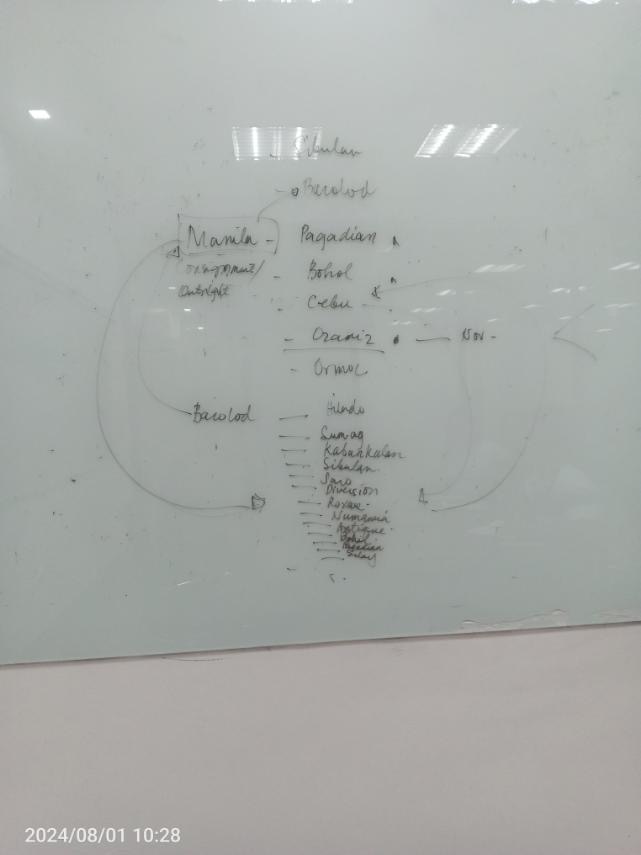 Sibulan
- Bacolod
Manila - Pagadian
consignment/
Outright
- Bohol
- Cebu
- Ozamiz - Nov -
- Ormoc
Bacolod - Hilado
- Sumag
- Kabankalan
- Sibulan
- Saro
- Diversion
- Roxas
- Numancia
- Antique
- Bohol
- Pagadian
- Silay
2024/08/01 10:28